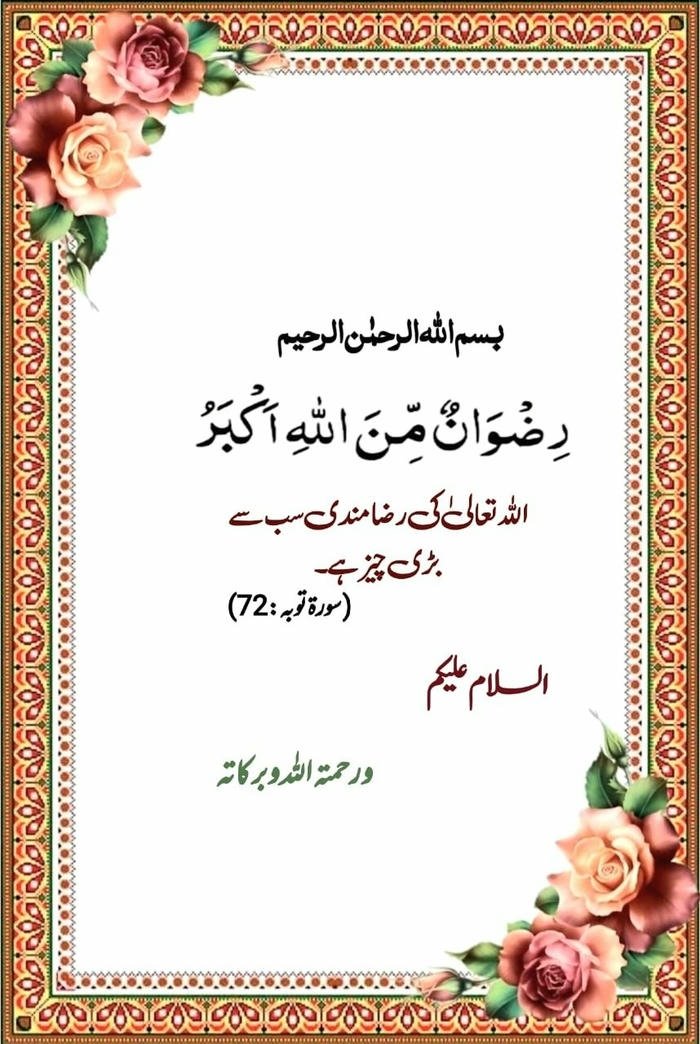 بسم الله الرحمٰن الرحیم
رِضْوَانٌ مِّنَ اللهِ اَکْبَرُ
اللہ تعالیٰ کی رضا مندی سب سے
بڑی چیز ہے۔
(سورۃ توبہ :72)
السلام علیکم
ورحمتہ اللہ وبرکاتہ